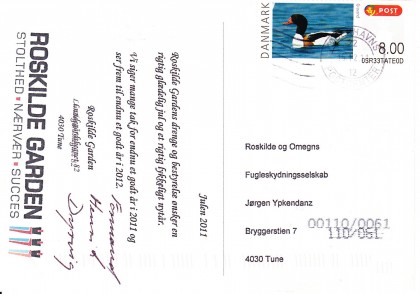 ROSKILDE GARDEN
STOLTHED • NÆRVÆR • SUCCES
Julen 2011
Roskilde Gardens drenge og bestyrelse ønsker en
rigtig glædelig jul og et rigtig lykkeligt nytår.
Vi siger mange tak for endnu et godt år i 2011 og
ser frem til endnu et godt år i 2012.
Roskilde Garden
4030 Tune
DANMARK
POST
8.00
Roskilde og Omegns
Fugleskydningsselskab
Jørgen Ypkendanz
Bryggerstien 7
4030 Tune
00110/0061